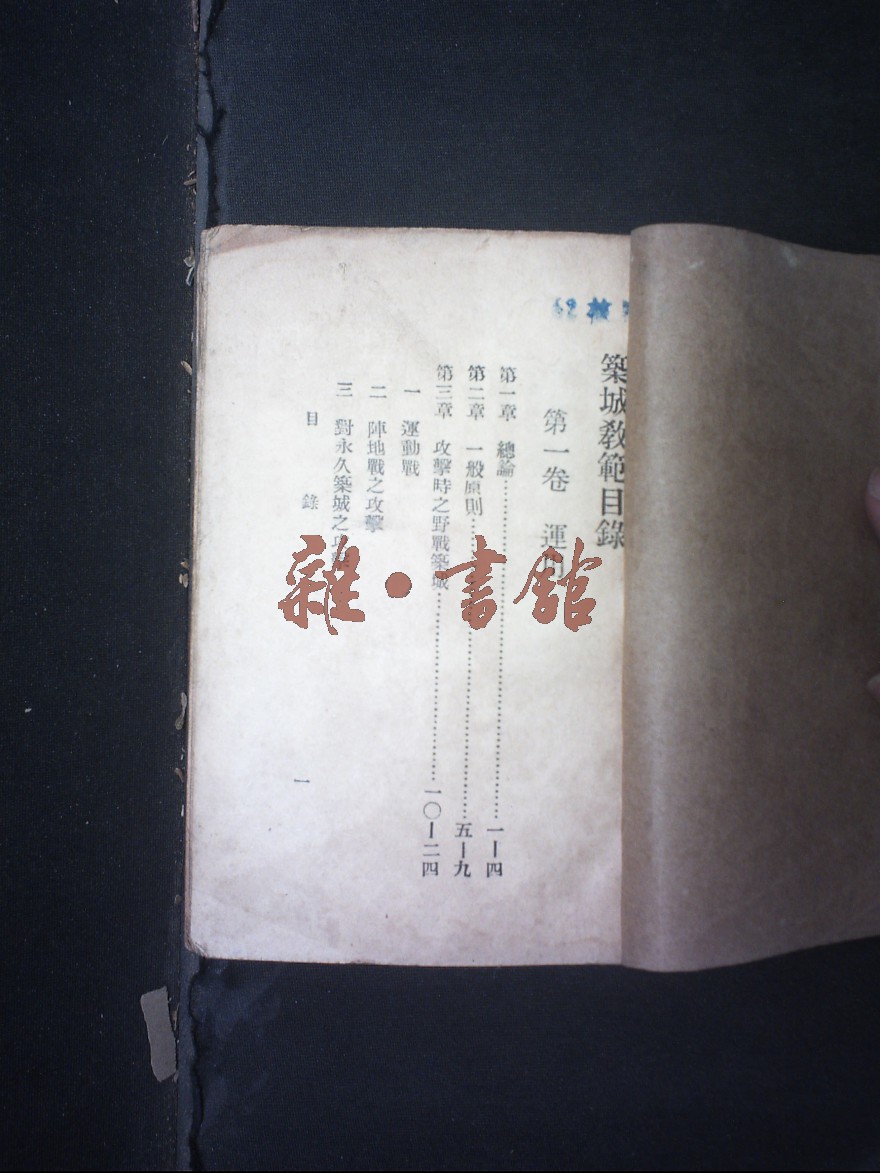 築城教範目錄
第一卷　運用
第一章　總論…………一—四
第二章　一般原則…………五—九
第三章　攻擊時之野戰築城…………一〇—二四
一　運動戰
二　陣地戰之攻擊
三　對永久築城之攻擊
目錄　一
雜・書館